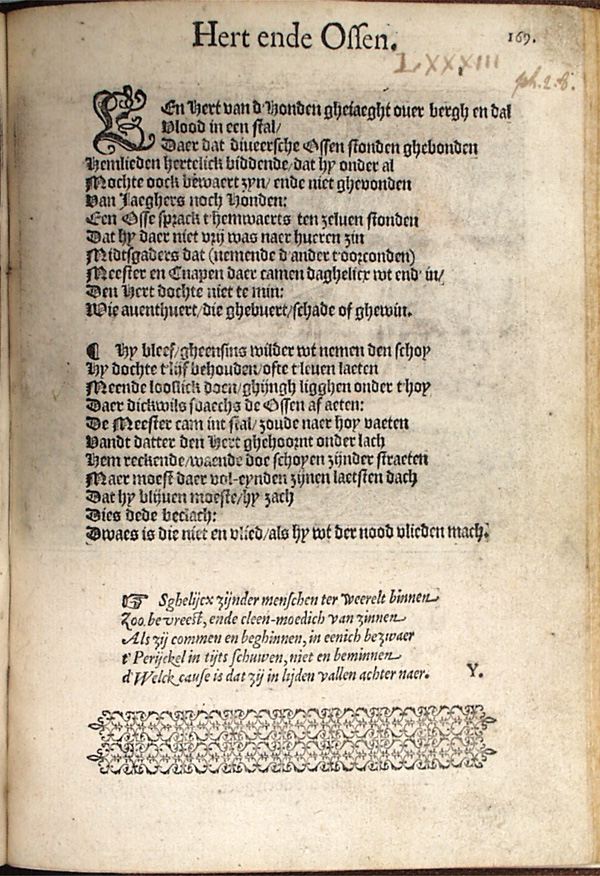 Hert ende Ossen.
169.
LXXXIII
ph. 2. 8.
EEn Hert van d'Honden gheiaeght ouer bergh en dal
Vlood in een stal/
Daer dat diueersche Ossen stonden ghebonden
Hemlieden hertelick biddende/dat hy onder al
Mochte oock bewaert zyn/ ende niet ghevonden
Van Jaeghers noch Honden:
Een Osse sprack t'hemwaerts ten zeluen stonden
Dat hy daer niet vrij was naer hueren zin
Midtsgaders dat (nemende d'ander t'oorconden)
Meester en Cnapen daer camen daghelicx wt end' in/
Den Hert dochte niet te min:
Wie auenthuert/die ghebuert/schade of ghewin.
¶ Hy bleef/gheensins wilder wt nemen den schoy
Hy dochte t'lijf behouden/ofte t'leuen laeten
Meende looslick doen/ghijngh ligghen onder t'hoy
Daer dickwils sdaechs de Ossen af aeten:
De Meester cam int stal/zoude naer hoy vaeten
Vandt datter den Hert ghehoornt onder lach
Hem reckende/waende doe schoyen zijnder straeten
Maer moest daer vol-eynden zijnen laetsten dach
Dat hy blijuen moeste/hy zach
Dies dede beclach:
Dwaes is die niet en vlied/als hy wt der nood vlieden mach.
☞ Sghelijcx zijnder menschen ter weerelt binnen
Zoo bevreest, ende cleen-moedich van zinnen
Als zij commen en beghinnen, in eenich bezwaer
t'Perijckel in tijts schuwen, niet en beminnen
d'Welck cause is dat zij in lijden vallen achter naer.
Y.